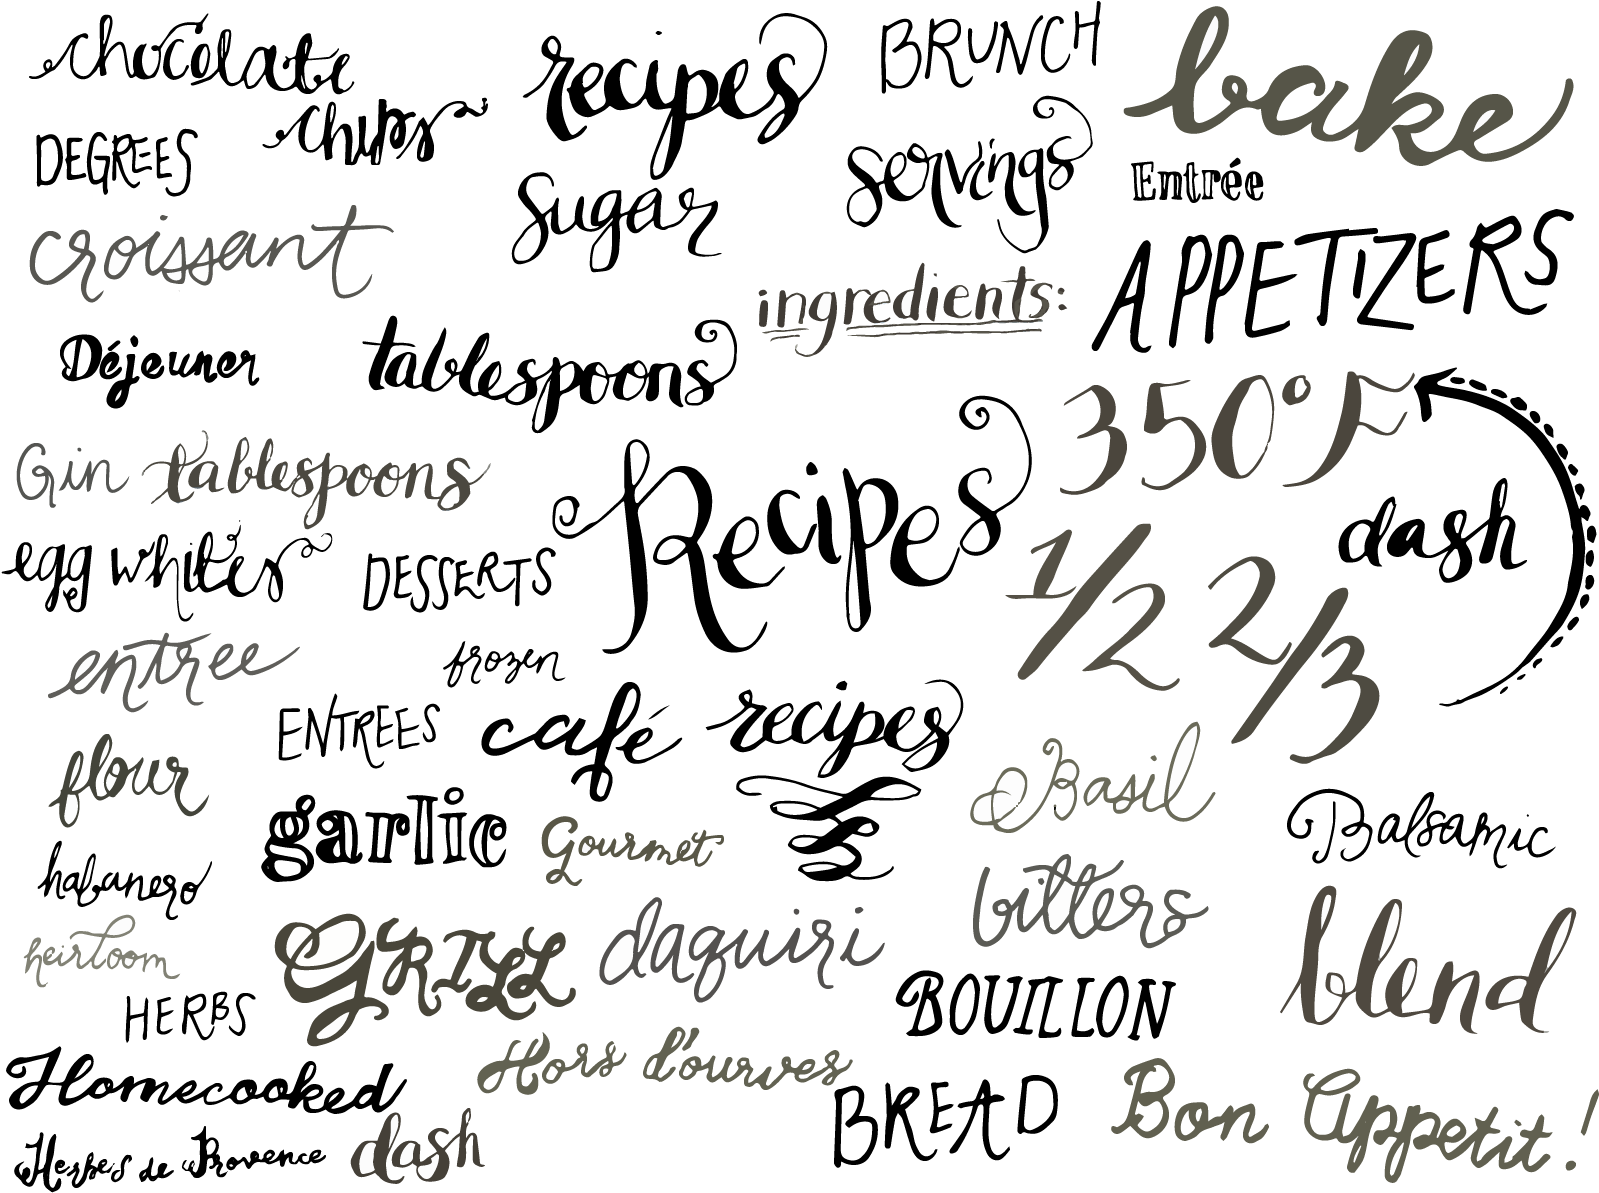 chocolate
chips
recipes
BRUNCH
bake
DEGREES
servings
Entrée
sugar
croissant
APPETIZERS
ingredients:
Déjeuner
tablespoons
350°F
Gin
tablespoons
Recipes
dash
egg whites
DESSERTS
1/2
2/3
entree
frozen
ENTREES
café
recipes
flour
Basil
garlic
Gourmet
Balsamic
habanero
bitters
blend
heirloom
GRILL
daquiri
HERBS
BOUILLON
Homecooked
Hors d'ourves
BREAD
Bon Appetit!
Herbes de Provence
dash